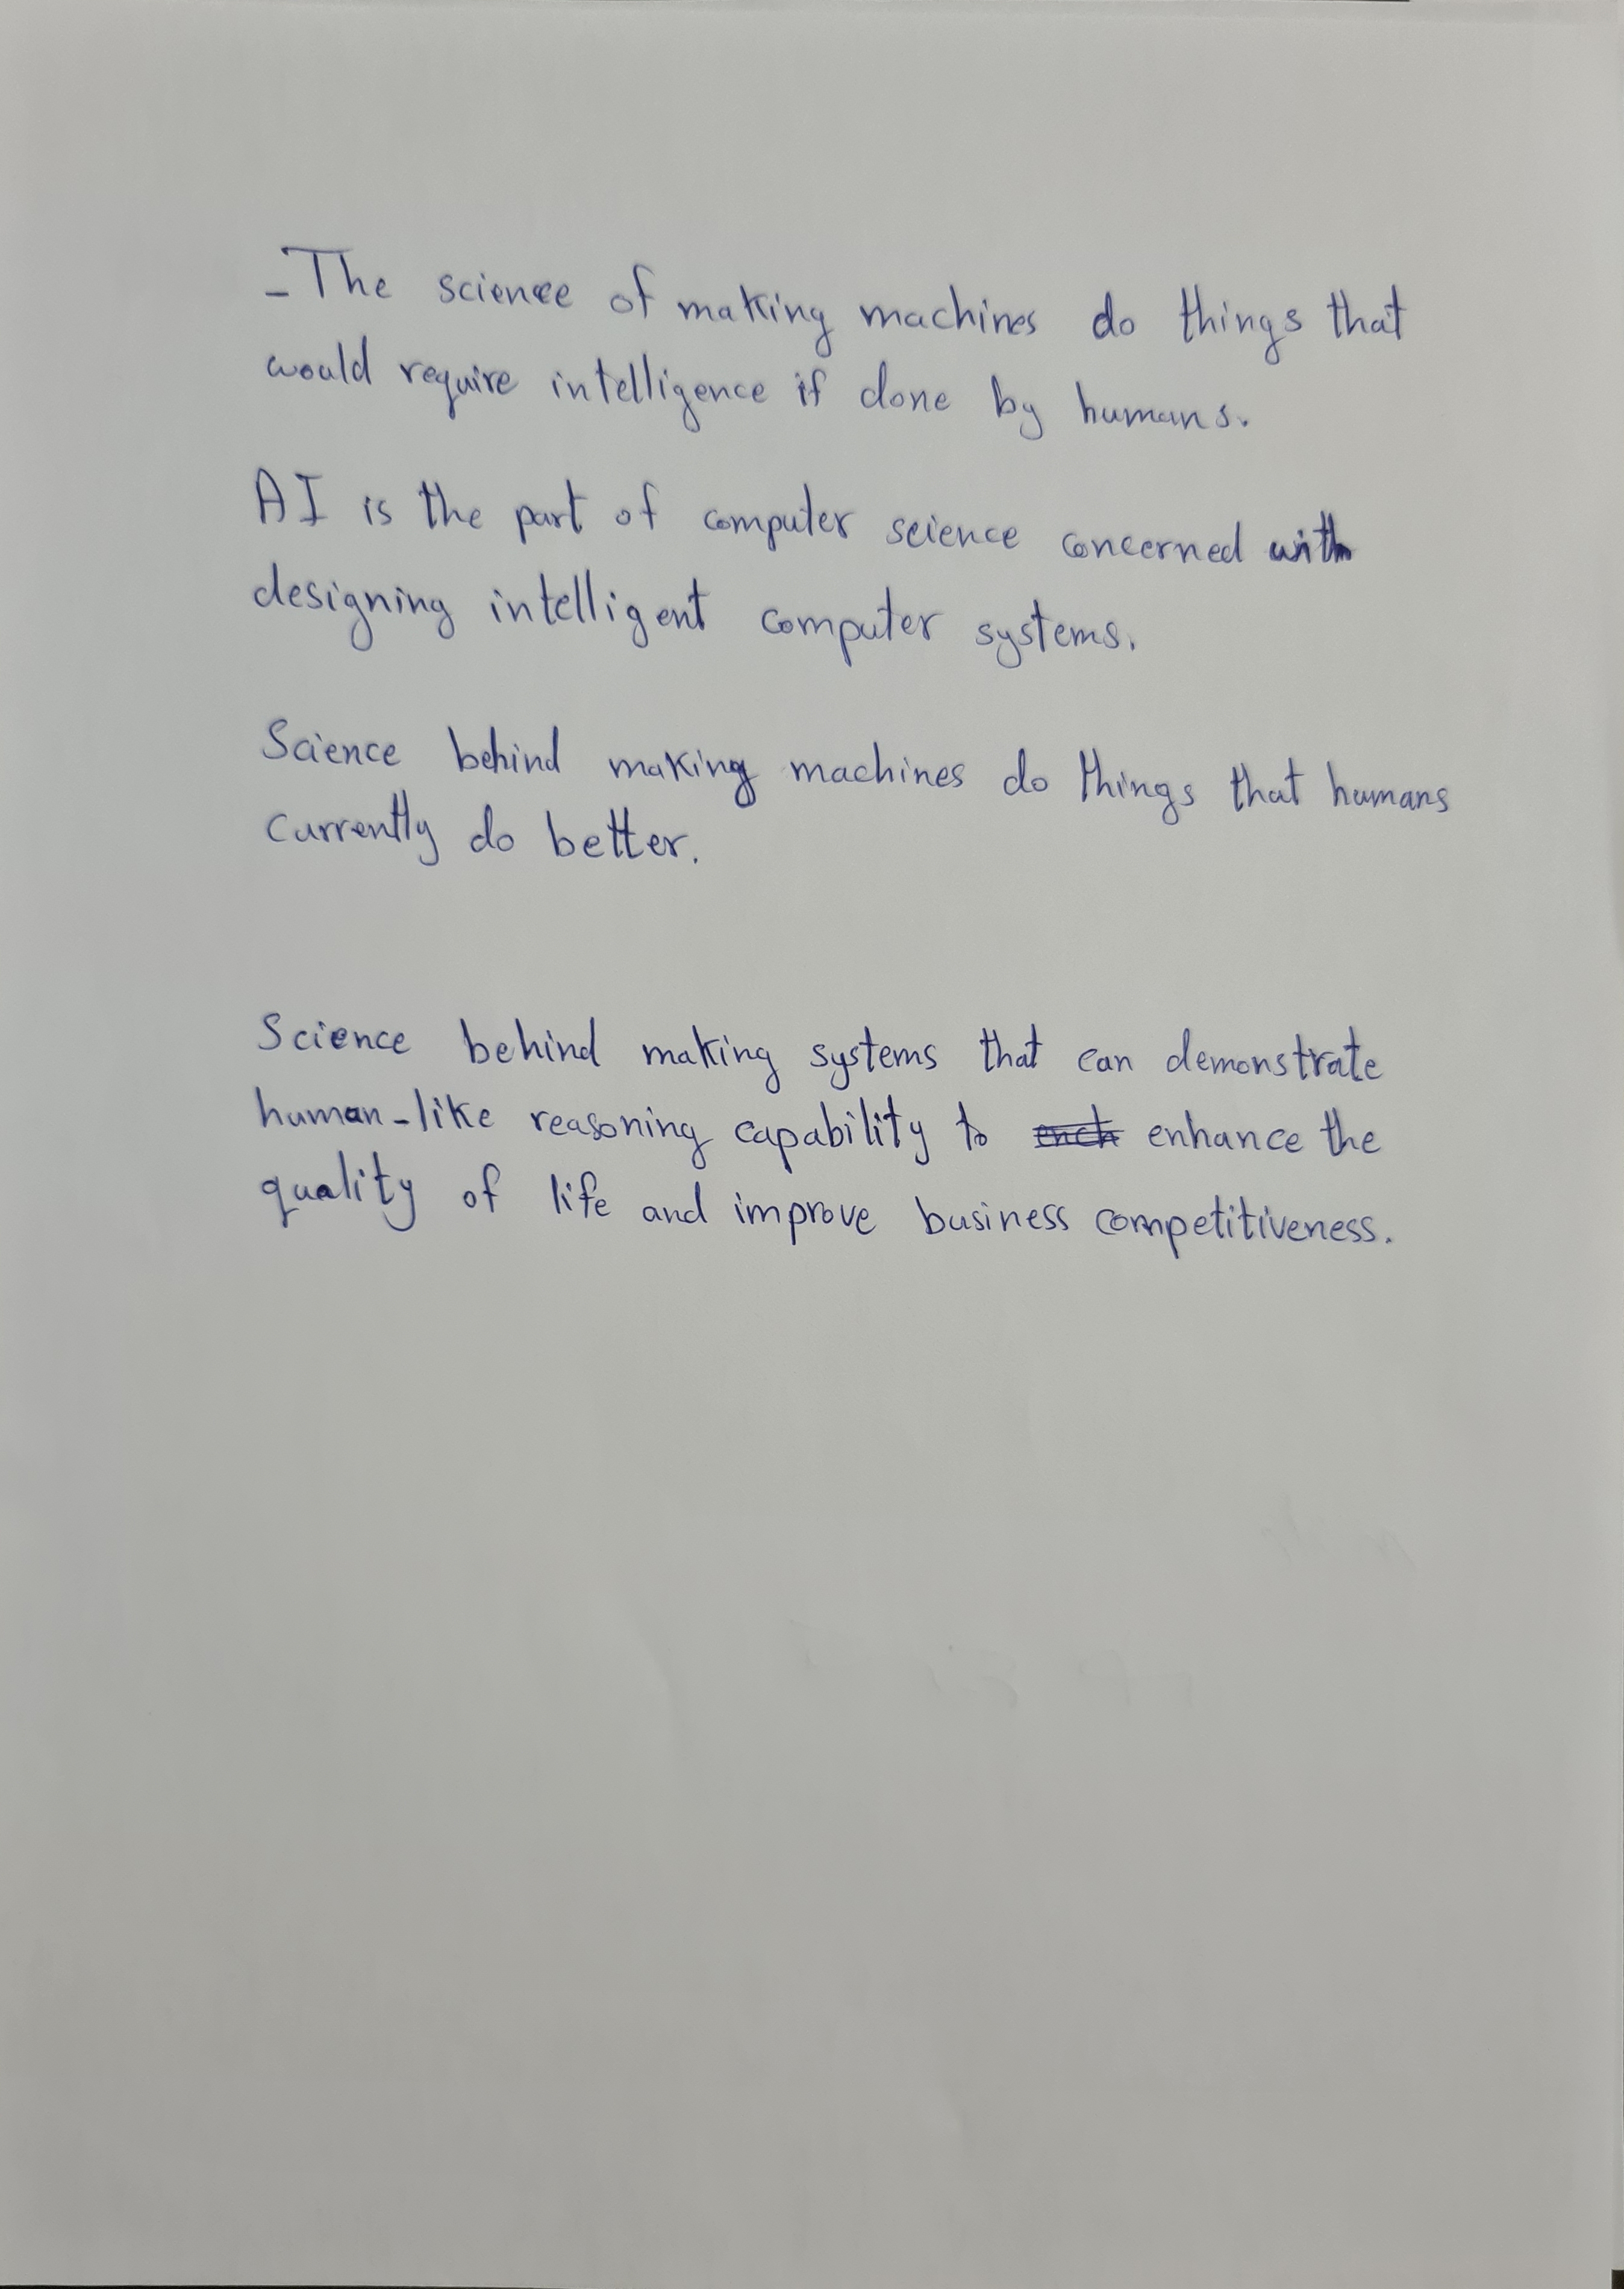 - The science of making machines do things that
would require intelligence if done by humans.
AI is the part of computer science concerned with
designing intelligent computer systems.
Science behind making machines do things that humans
currently do better.
Science behind making systems that can demonstrate
human-like reasoning capability to enhance the
quality of life and improve business competitiveness.